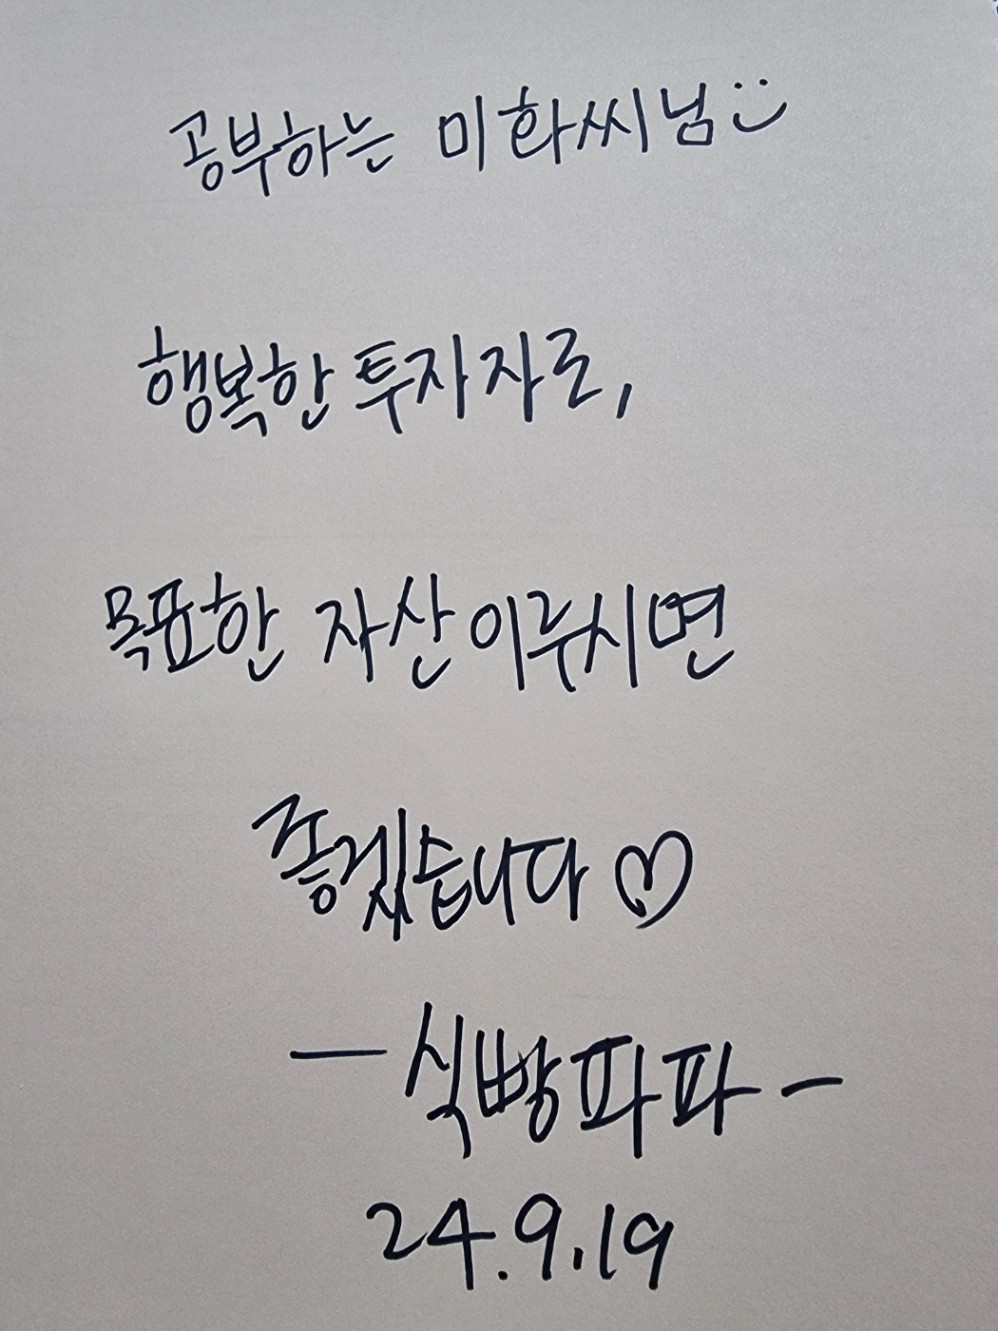 공부하는 미화씨님
행복한 투자자로,
목표한 자산 이루시면
좋겠습니다 ♡
- 식빵파파 -
24.9.19